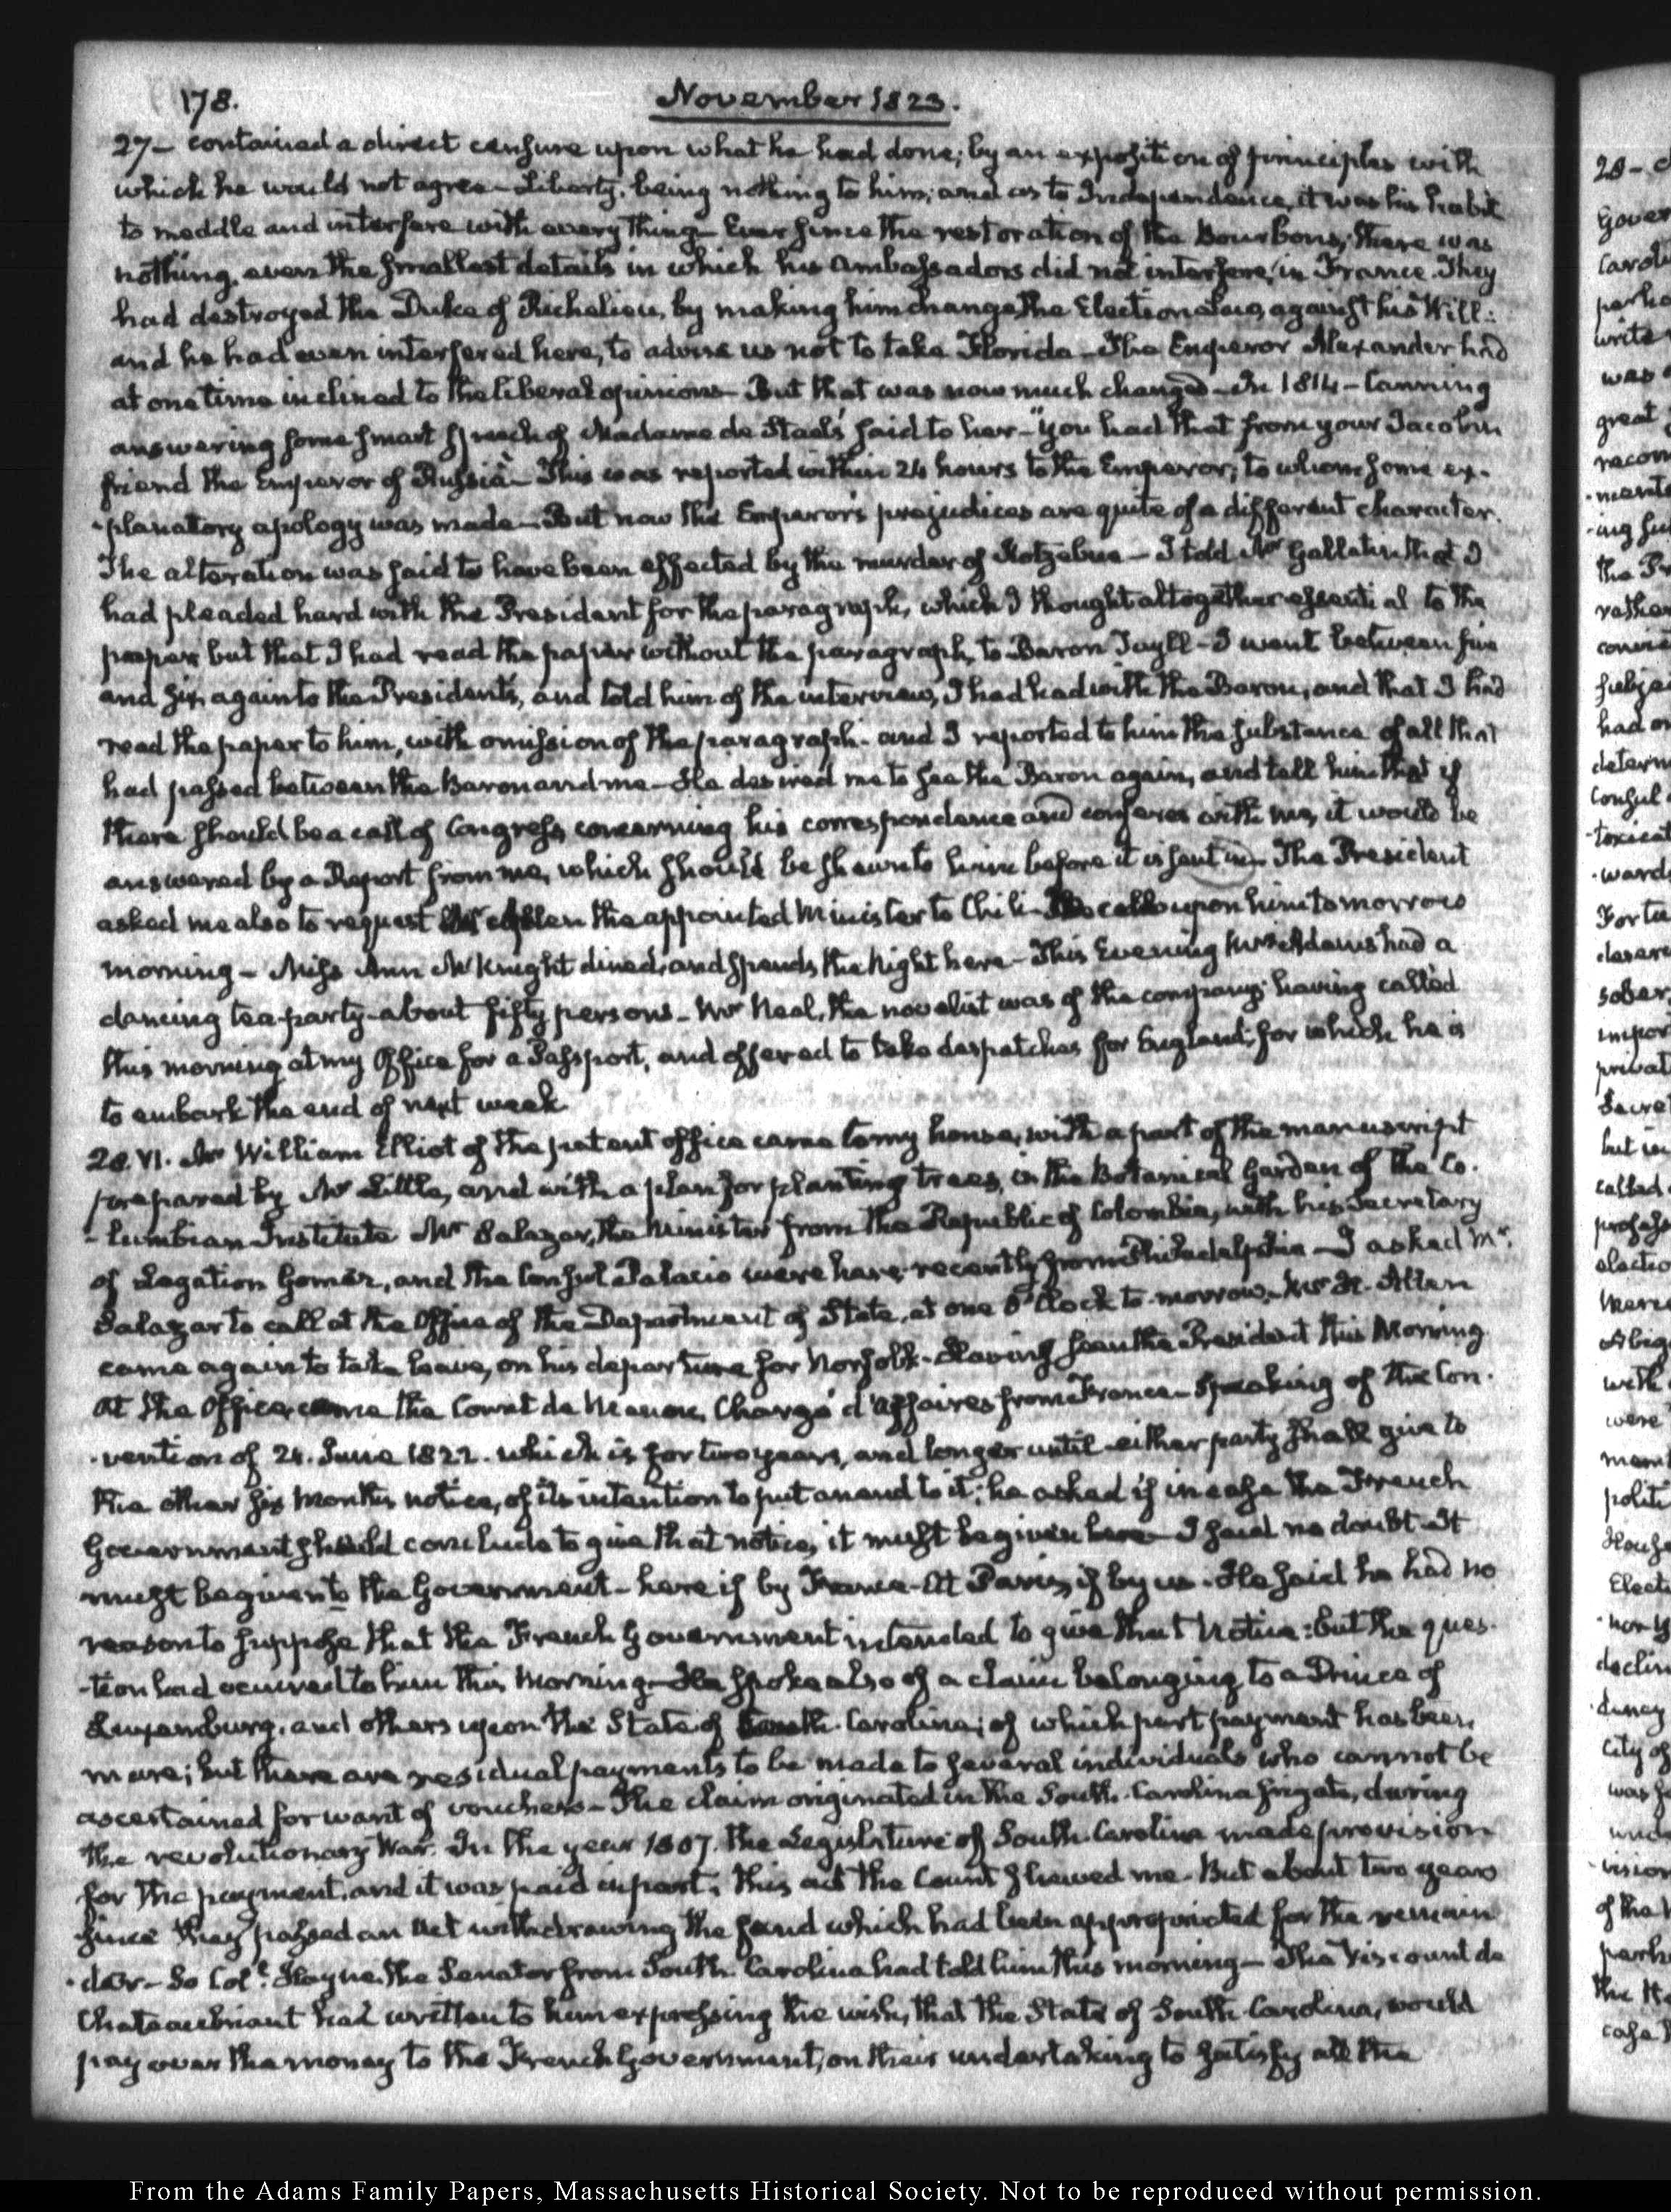 178.
November 1823.
27— contained a direct censure upon what he had done; by an exposition of principles with
which he would not agree— Liberty, being nothing to him; and as to Independence, it was his habit
to meddle and interfere with every thing— Ever since the restoration of the Bourbons, there was
nothing, even the smallest details in which his Ambassadors did not interfere, in France. They
had destroyed the Duke of Richelieu, by making him change the Election Law, against his Will:
and he had even interfered here, to advise us not to take Florida— The Emperor Alexander had
at one time inclined to the liberal opinions— But that was now much changed— In 1814— Canning
answering some smart speech of Madame de Stael's said to her— "you had that from your Jacobin
friend the Emperor of Russia"— This was reported within 24 hours to the Emperor; to whom some ex-
-planatory apology was made— But now the Emperor's prejudices are quite of a different character.
The alteration was said to have been effected by the murder of Kotzebue— I told Mr Gallatin that I
had pleaded hard with the President for the paragraph, which I thought altogether essential to the
paper but that I had read the paper without the paragraph, to Baron Tuyll— I went between five
and six again to the President's, and told him of the interview, I had had with the Baron, and that I had
read the paper to him, with omission of the paragraph— and I reported to him the substance of all that
had passed between the Baron and me— He desired me to see the Baron again, and tell him that if
there should be a call of Congress concerning his correspondence and conferes with me, it would be
answered by a Report from me, which should be shewn to him before it is sent in— The President
asked me also to request Mr Allen the appointed Minister to Chili— To call upon him tomorrow
morning— Miss Ann McKnight dined, and spends the Night here— This Evening Mrs Adams had a
dancing tea-party— about fifty persons— Mr Neal, the novelist was of the company: having called
this morning at my Office for a Passport, and offered to take despatches for England; for which he is
to embark the end of next week
28. VI. Mr William Elliot of the patent office came to my house, with a part of the manuscript
prepared by Mr Little, and with a plan for planting trees, in the Botanical Garden of the Co-
-lumbian Institute Mr Salazar, the Minister from the Republic of Colombia, with his Secretary
of Legation Gomez, and the Consul Palacio were here recently from Philadelphia— I asked Mr
Salazar to call at the Office of the Department of State, at one O'Clock to-morrow. Mr H. Allen
came again to take leave, on his departure for Norfolk— Having seen the President this Morning
At the Office came the Count de Menou, Chargé d'Affaires from France— Speaking of the Con-
-vention of 24. June 1822. which is for two years, and longer until either party shall give to
the other six Months notice, of its intention to put an end to it; he asked if in case the French
Government should conclude to give that notice, it must be given here— I said no doubt— It
must be given to the Government— here if by France— At Paris, if by us— He said he had no
reason to suppose that the French Government intended to give that Notice: but the ques-
-tion had occurred to him this Morning— He spoke also of a claim belonging to a Prince of
Luxemburg, and others upon the State of South-Carolina; of which part payment has been
made; but there are residual payments to be made to several individuals who cannot be
ascertained for want of vouchers— The claim originated in the South-Carolina frigate, during
the revolutionary War. In the year 1807. the Legislature of South-Carolina made provision
for the payment, and it was paid in part. This act the Count shewed me. But about two years
since they passed an Act withdrawing the fund which had been appropriated for the remain
-der— So Colo. Hayne the Senator from South Carolina had told him this morning— The Viscount de
Chateaubriant had written to him expressing the wish, that the State of South-Carolina, would
pay over the money to the French Government, on their undertaking to satisfy all the
From the Adams Family Papers, Massachusetts Historical Society. Not to be reproduced without permission.